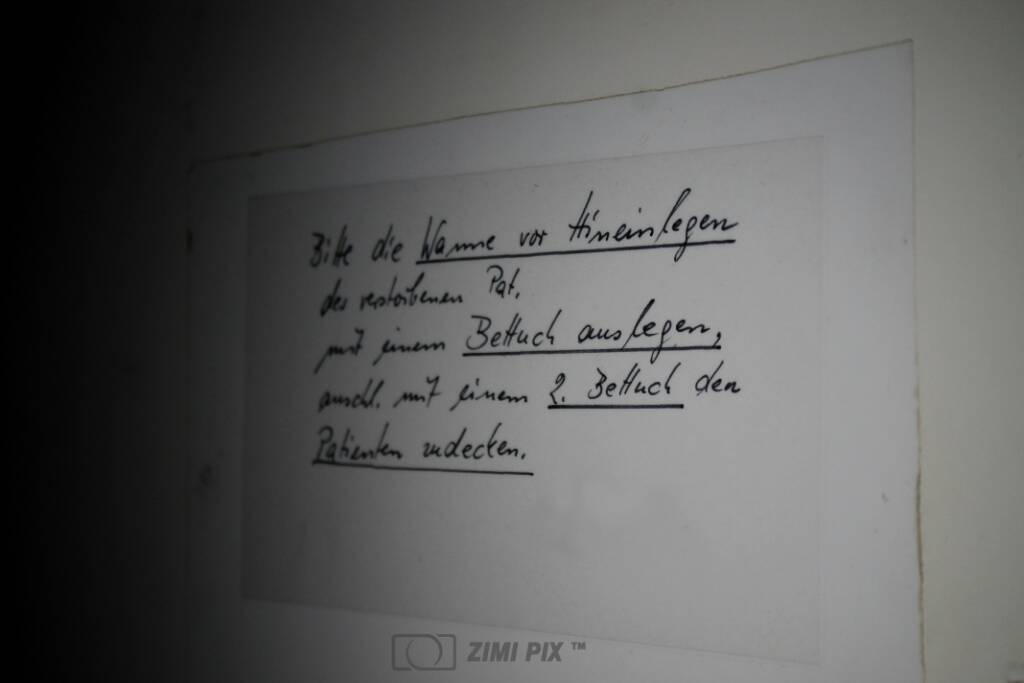 Bitte die Wanne vor Hineinlegen
des verstorbenen Pat.
mit einem Bettuch auslegen,
anschl. mit einem 2. Bettuch den
Patienten zudecken.
ZIMI PIX ™